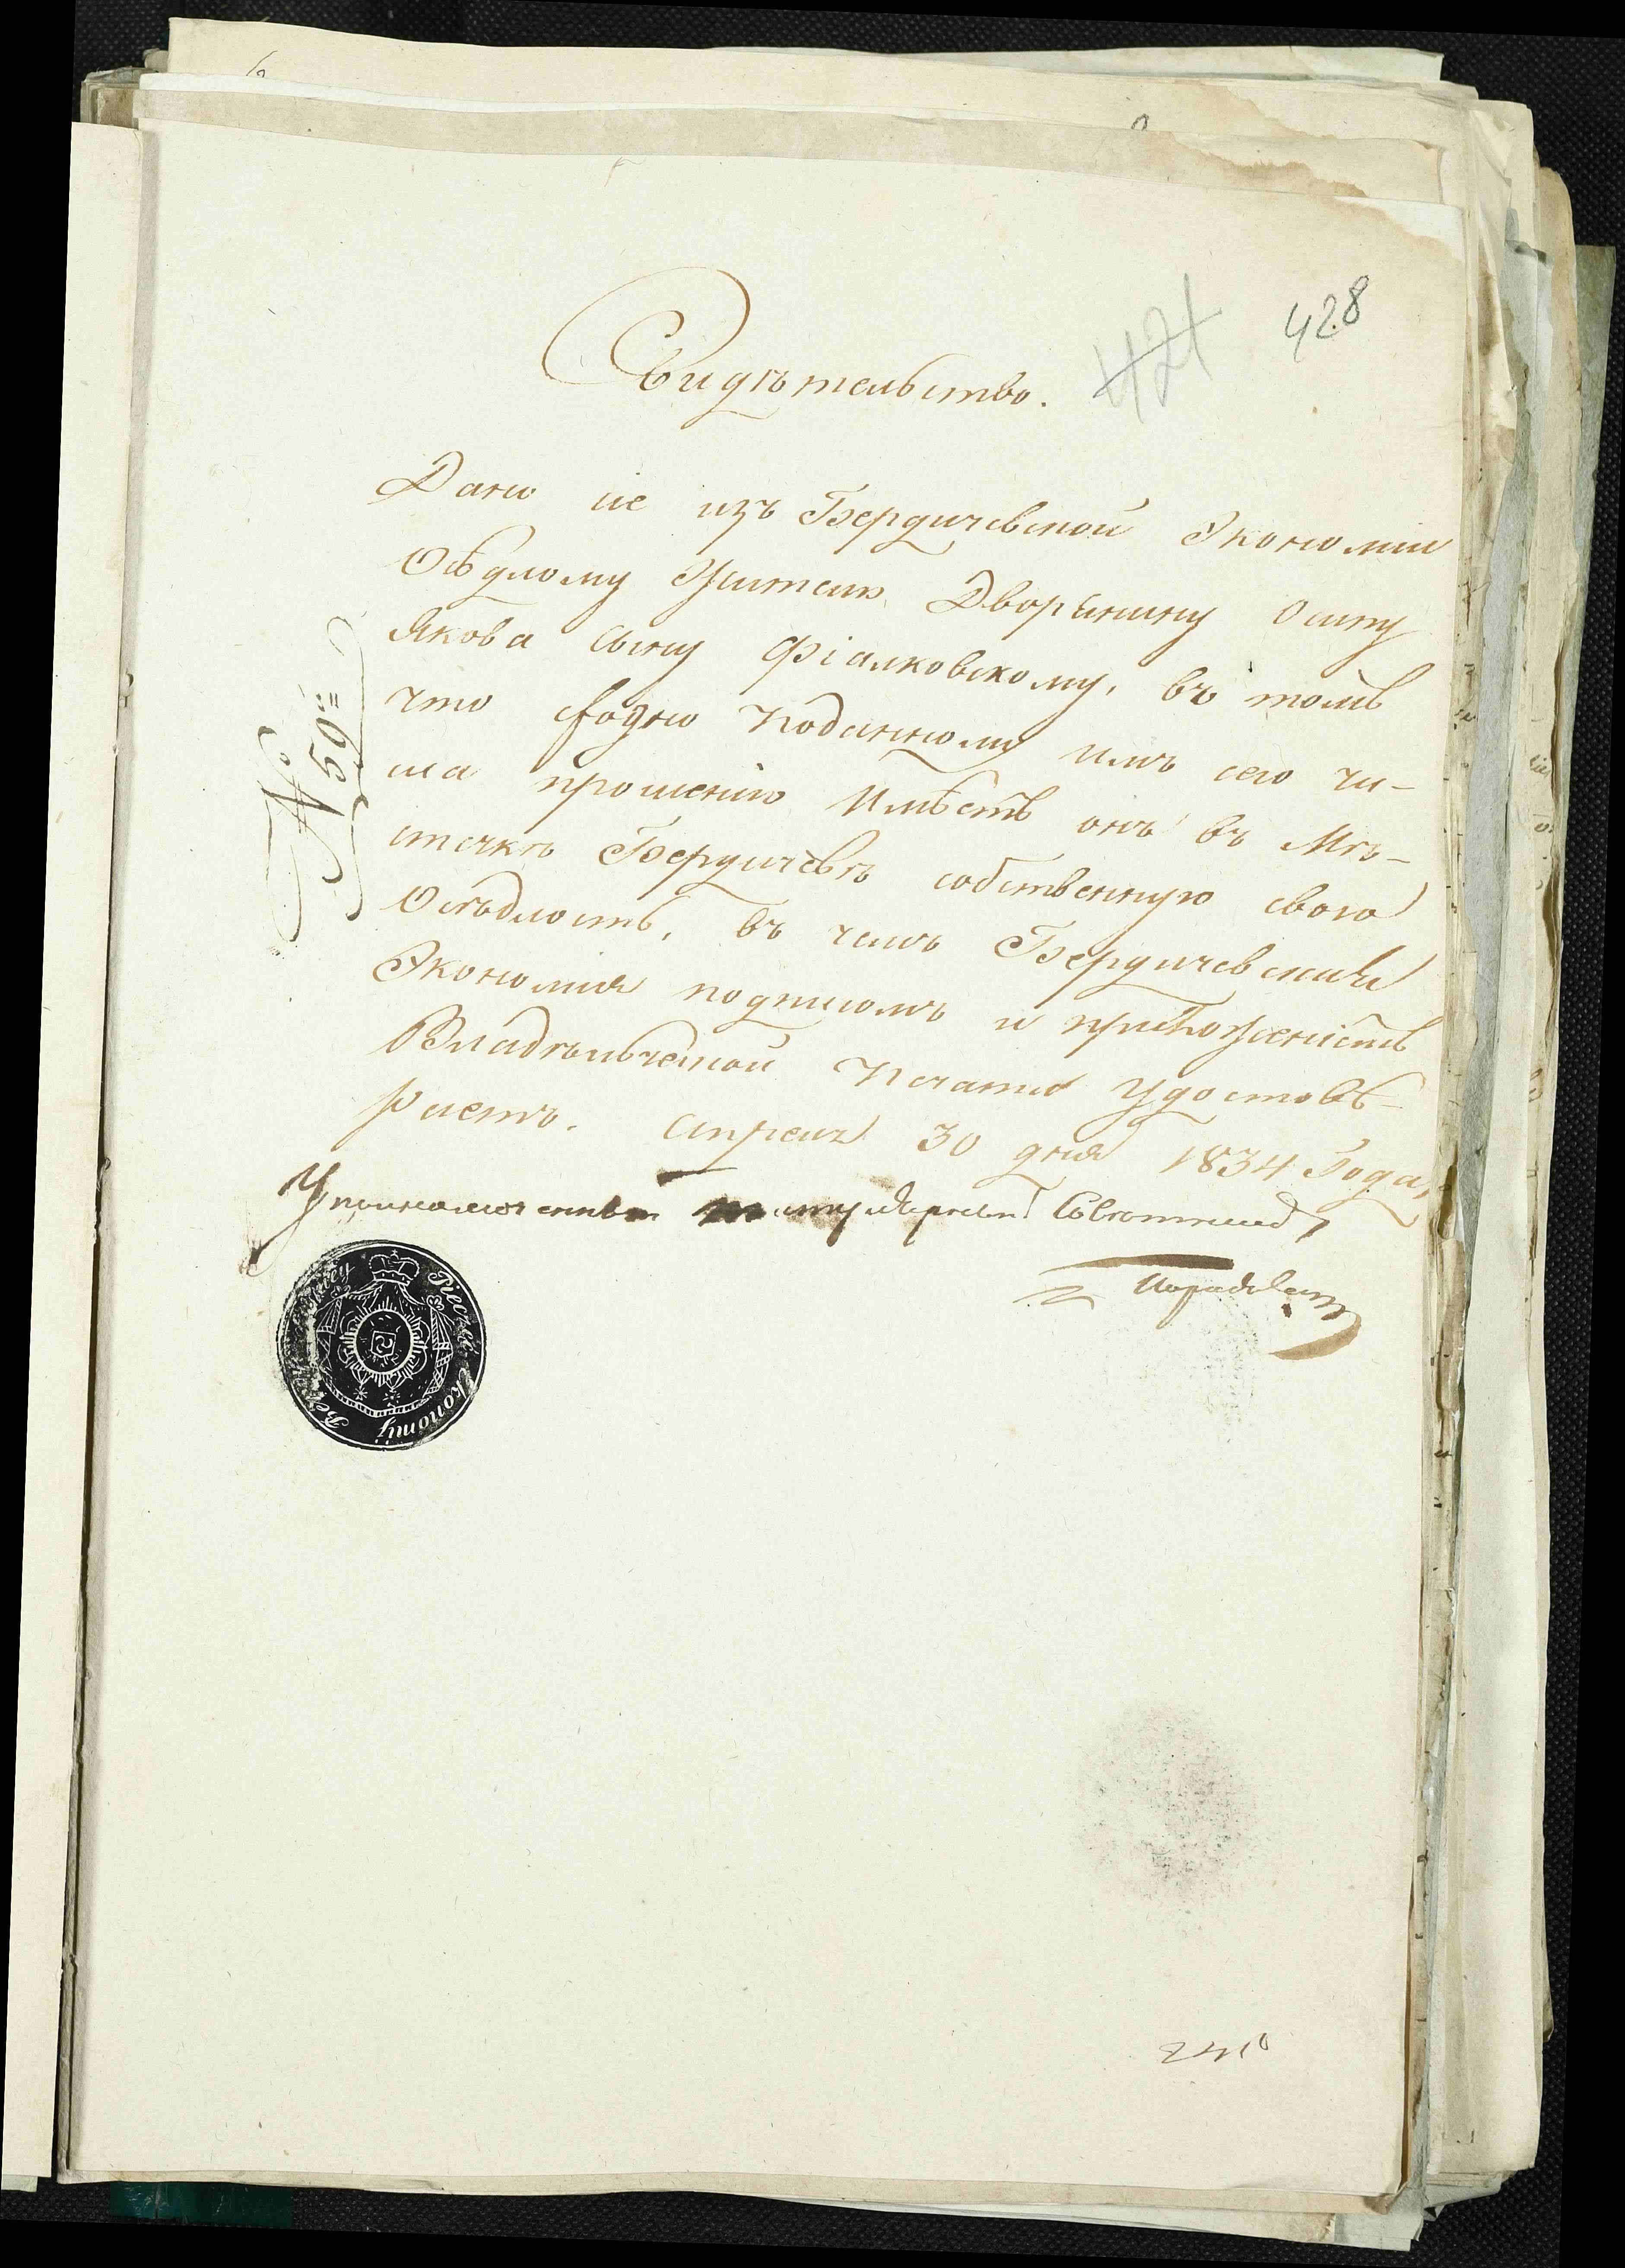 428
421
Свидѣтельство.
Дано сіе изъ Бердичевской Экономіи
Осѣдлому Жителю Дворянину Осипу
Якова сыну Фіалковскому, въ томъ
что сходно поданному имъ сего чи-
сла прошенію Имѣетъ онъ въ Мѣ-
стечкѣ Бердичевѣ собственную свою
Осѣдлость, въ чемъ Бердичевская
Экономія подписомъ и приложеніемъ
Владѣльческой Печати Удостовѣ-
ряетъ. Апреля 30 дня 1834 Года,
№ 59
Титулярный Совѣтникъ
Pieczęć Ekonomij